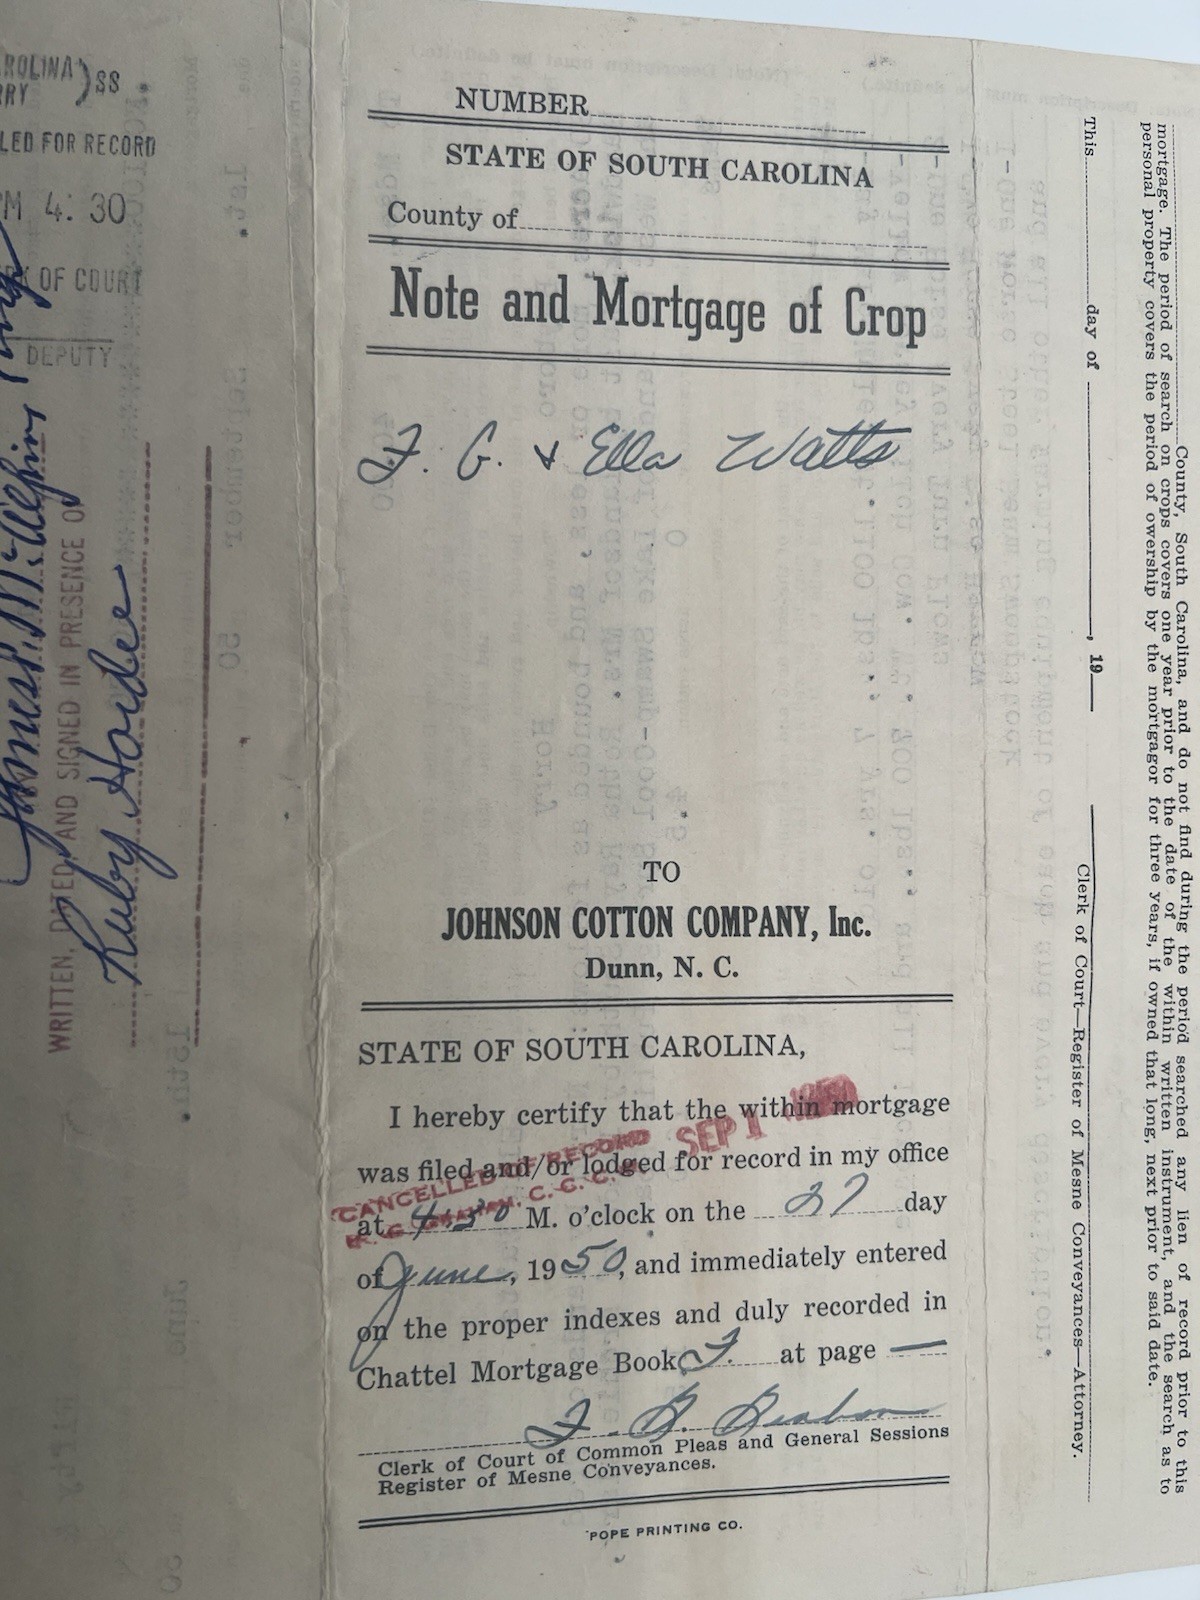 ROLINA) SS
RRY
LED FOR RECORD
PM 4:30
OF COURT
DEPUTY
WRITTEN, DATED, AND SIGNED IN PRESENCE OF
Ruby
NUMBER
STATE OF SOUTH CAROLINA
County of
Note and Mortgage of Crop
F. G. & Ella Watts
TO
JOHNSON COTTON COMPANY, Inc.
Dunn, N. C.
STATE OF SOUTH CAROLINA,
I hereby certify that the within mortgage
was filed and/or lodged for record in my office
at 4:30 M. o'clock on the 27 day
of June, 1950, and immediately entered
on the proper indexes and duly recorded in
Chattel Mortgage Book F. at page —
Clerk of Court of Common Pleas and General Sessions
Register of Mesne Conveyances.
POPE PRINTING CO.
SEP 1
CANCELLED OF RECORD
C. C. C.
County, South Carolina, and do not find during the period searched any lien of record prior to this
mortgage. The period of search on crops covers one year prior to the date of the within written instrument, and the search as to
personal property covers the period of owership by the mortgagor for three years, if owned that long, next prior to said date.
This day of , 19
Clerk of Court—Register of Mesne Conveyances—Attorney.